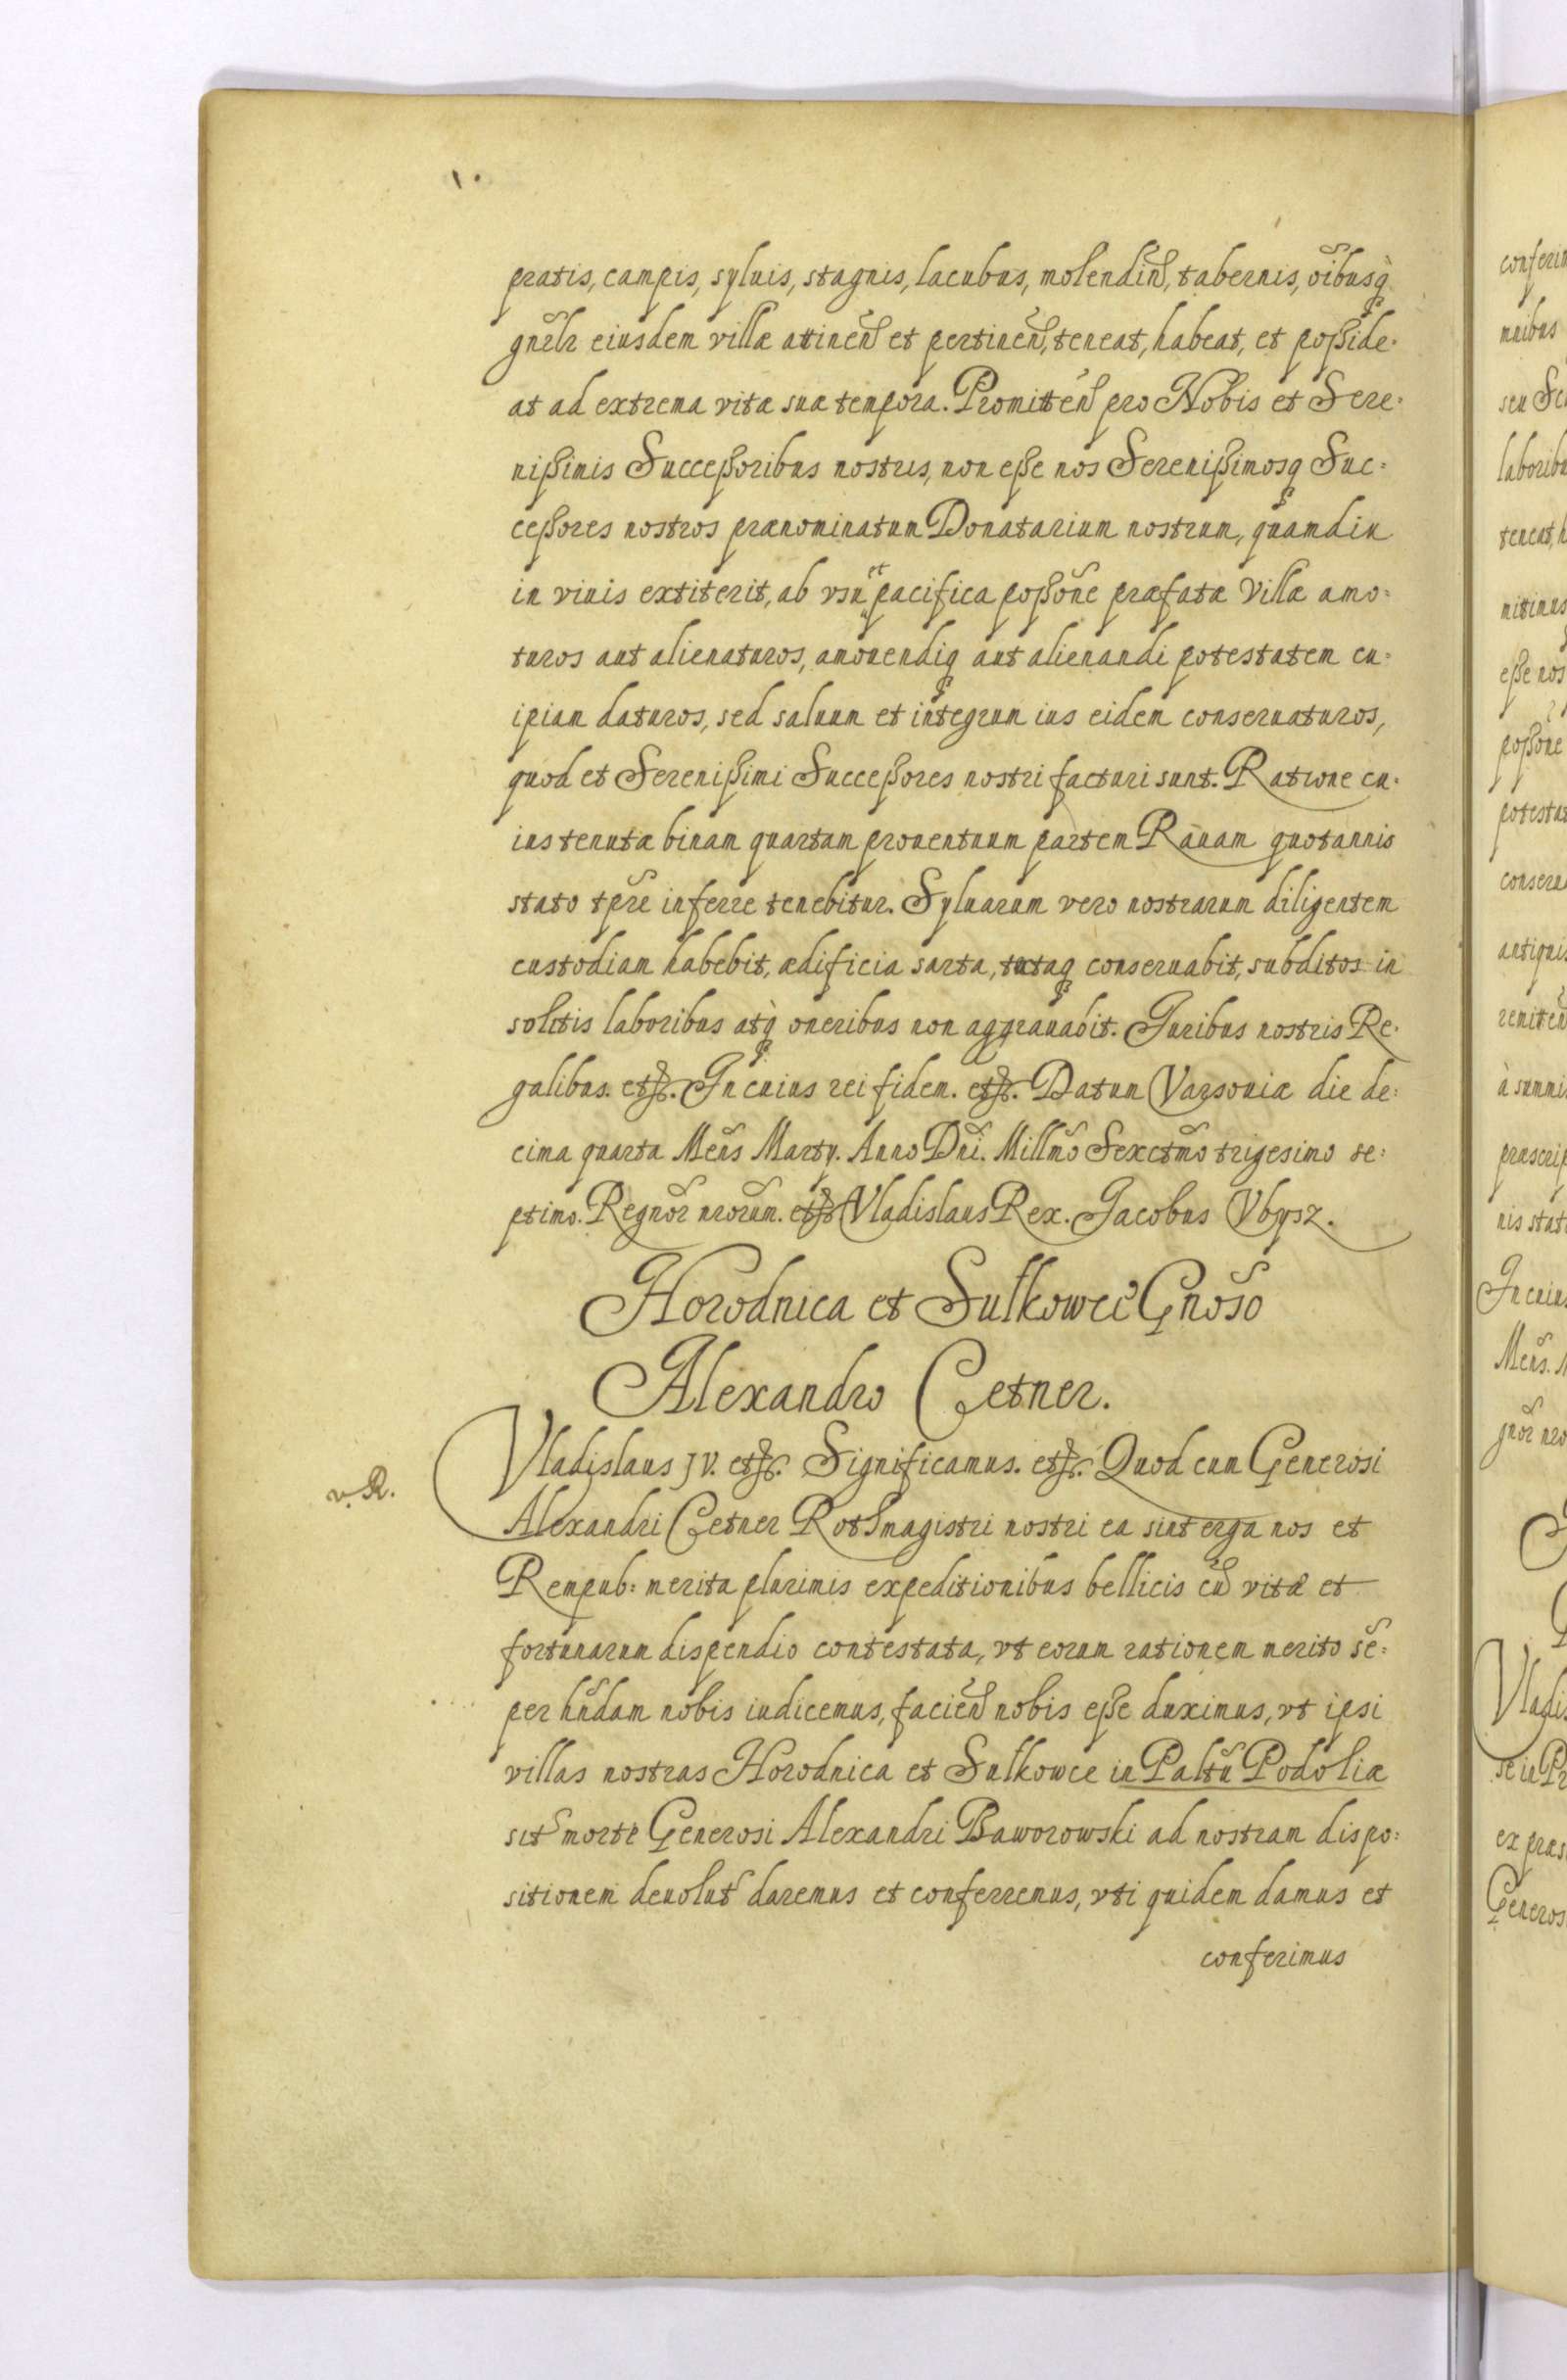 pratis, campis, syluis, stagnis, lacubus, molendin̄, tabernis, oībusq̀
gnr̄lr eiusdem villæ attinen̄ et pertinen̄, teneat, habeat, et poßide-
at ad extrema vitæ suæ tempora. Promitten̄ pro Nobis et Sere-
nißimis Succeßoribus nostris, non eße nos Serenißimosq Suc=
ceßores nostros prænominatum Donatarium nostrum, quamdiu
in viuis extiterit, ab vsu et pacifica poßoñe præfatæ Villæ amo=
turos aut alienaturos, amouendiq aut alienandi potestatem cu=
ipiam daturos, sed saluum et integrum ius eidem conseruaturos,
quod et Serenißimi Succeßores nostri facturi sunt. Ratione cu-
ius tenutæ binam quartam prouentuum partem Rauam quotannis
stato tp̄re inferre tenebitur. Syluarum vero nostrarum diligentem
custodiam habebit, ædificia sarta, tectaq conseruabit, subditos in
solitis laboribus atq̀ oneribus non aggrauabit. Juribus nostris Re-
galibus. etc. In cuius rei fidem. etc. Datum Varsouiæ die de=
cima quarta Men̄s Martij. Anno Dn̄i. Millm̄o Sexctm̄o trigesimo se=
ptimo. Regnor̄ nrōrum. etc Vladislaus Rex. Jacobus Vbysz.
Horodnica et Sulkowce Gnōso
Alexandro Cetner.
v. R.
Vladislaus IV. etc. Significamus. etc. Quod cum Generosi
Alexandri Cetner Rothmagistri nostri ea sint erga nos et
Rempub: merita plurimis expeditionibus bellicis cū vitæ et
fortunarum dispendio contestata, vt eorum rationem merito sē=
per hn̄dam nobis iudicemus, facien̄ nobis eße duximus, vt ipsi
villas nostras Horodnica et Sulkowce in Paltū Podoliæ
sit morte Generosi Alexandri Baworowski ad nostram dispo=
sitionem deuolut daremus et conferremus, vti quidem damus et
conferimus